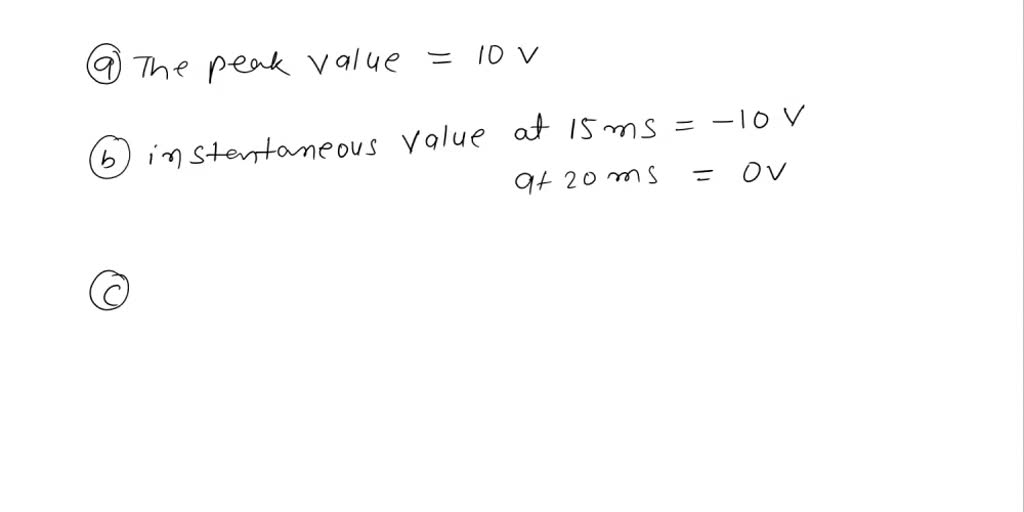 ⓐ The peak value = 10 V
ⓑ instentaneous value at 15 ms = -10 V
at 20 ms = 0V
ⓒ